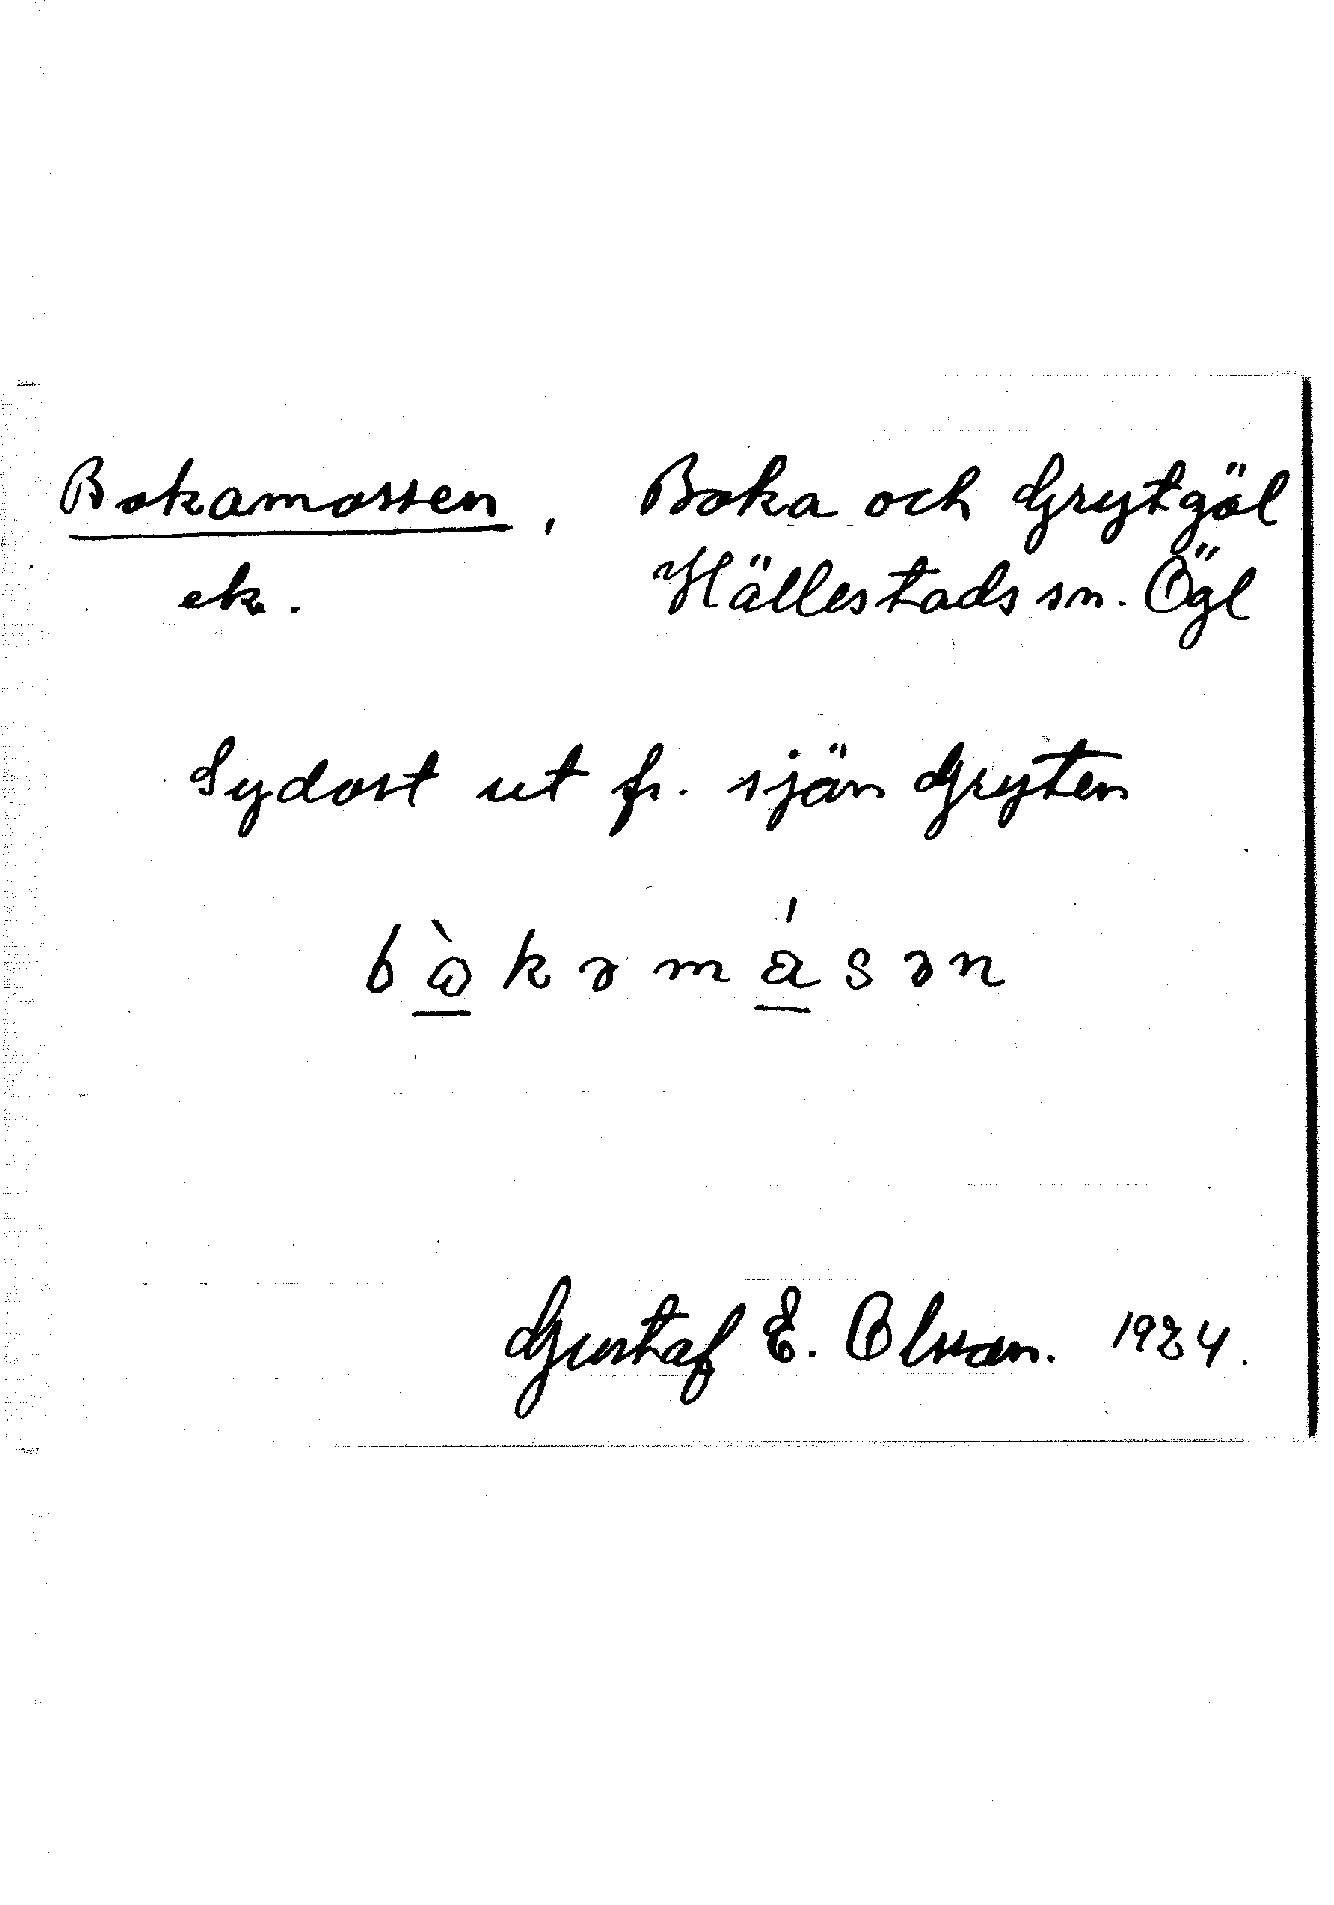 Bokamossen, Boka och Grytgöl
ek. Hällestads sn. Ögl
Sydost ut fr. sjön Gryten
bòkəmásən
Gustaf E. Olsson. 1934.